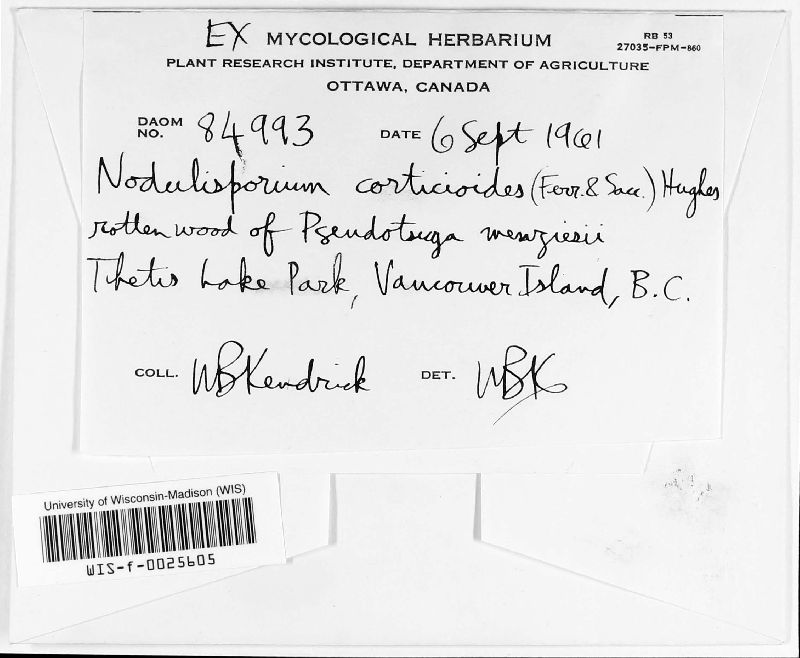 EX MYCOLOGICAL HERBARIUM
RB 53
27035-FPM-860
PLANT RESEARCH INSTITUTE, DEPARTMENT OF AGRICULTURE
OTTAWA, CANADA
DAOM NO. 84993 DATE 6 Sept 1961
Nodulisporium corticioides (Ferr. & Sacc.) Hughes
rotten wood of Pseudotsuga menziesii
Thetis Lake Park, Vancouver Island, B.C.
COLL. WBKendrick DET. WBK
University of Wisconsin-Madison (WIS)
WIS-f-0025605